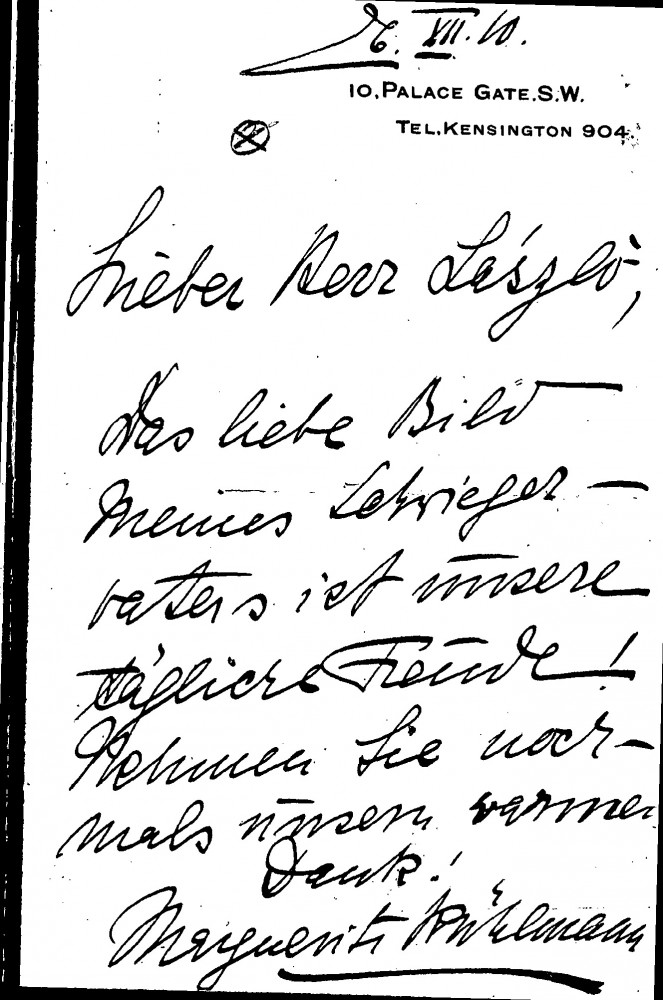 26. XII. 10.
10, PALACE GATE. S.W.
TEL. KENSINGTON 904.
Lieber Herr László,
Das liebe Bild
meines Schwieger-
vaters ist unsere
tägliche Freude!
Nehmen Sie noch-
mals unsern warmen
Dank!
Marguerite Kühlmann